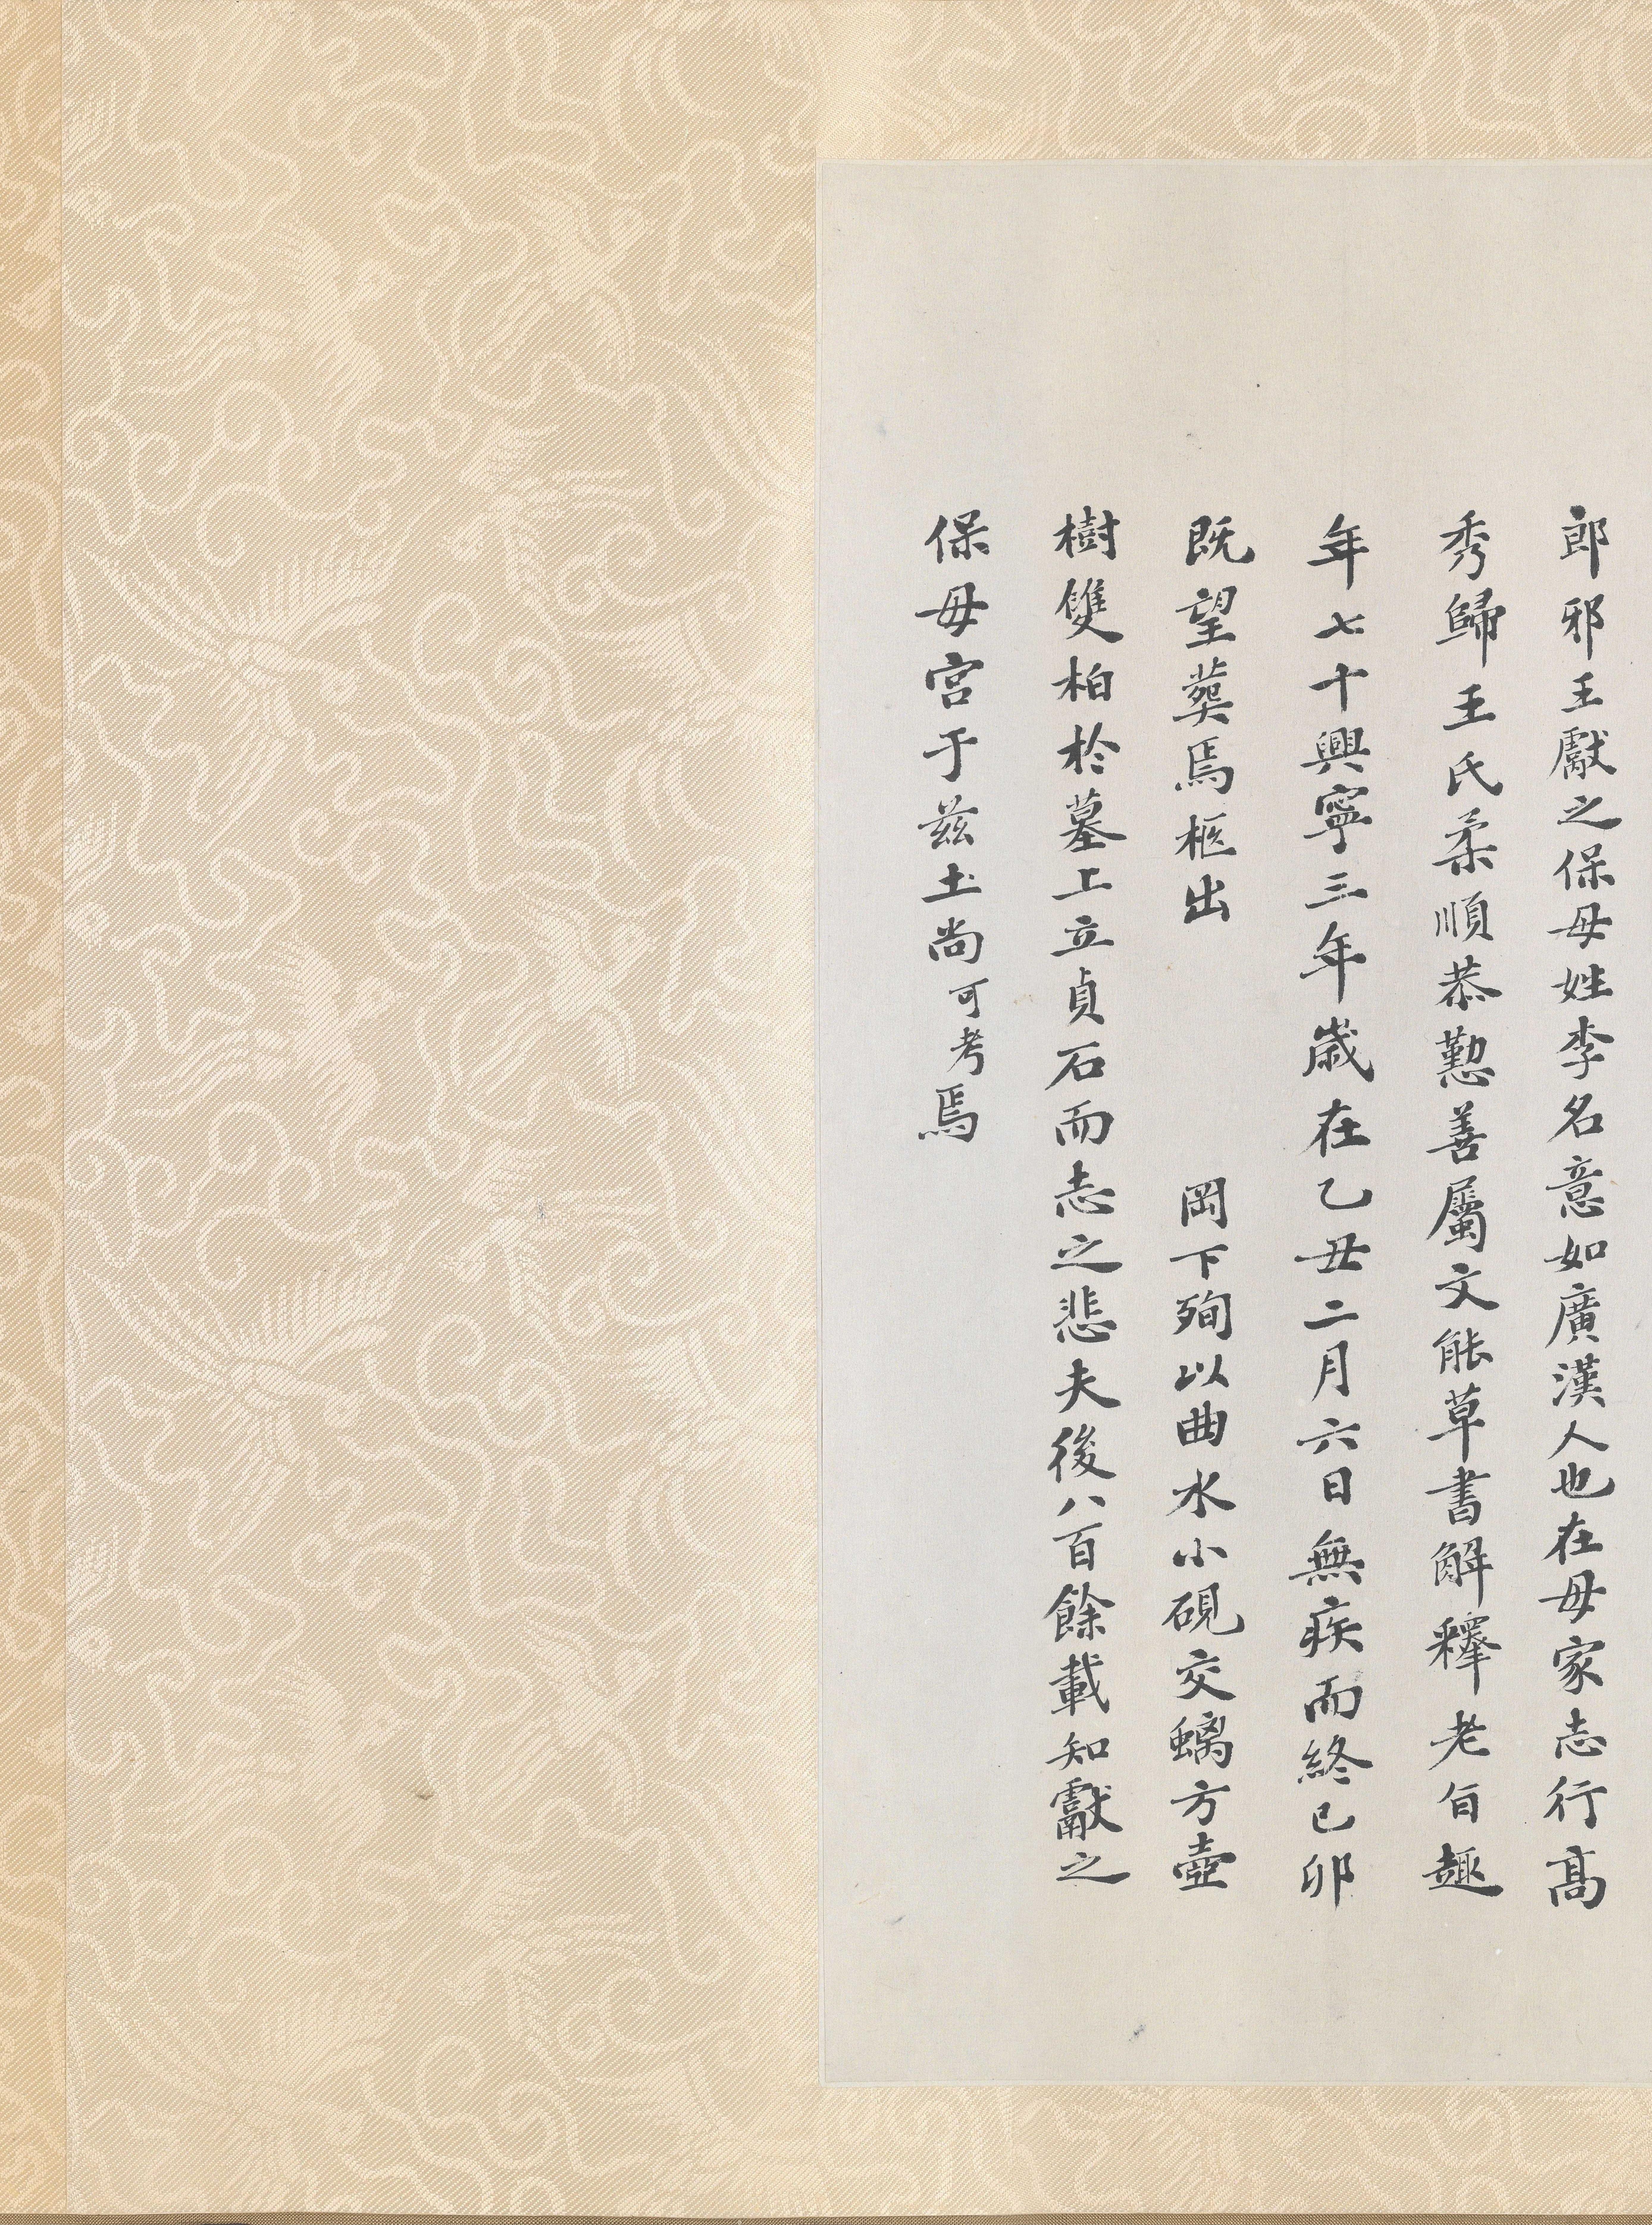 郎邪王獻之保母姓李名意如廣漢人也在母家志行髙
秀歸王氏柔順恭懃善屬文能草書解釋老旨趣
年七十興寧三年歳在乙丑二月六日無疾而終已夘
既望葬焉柩出 岡下殉以曲水小硯交螭方壺
樹雙柏於墓上立貞石而志之悲夫後八百餘載知獻之
保母宮于兹土尚可考焉